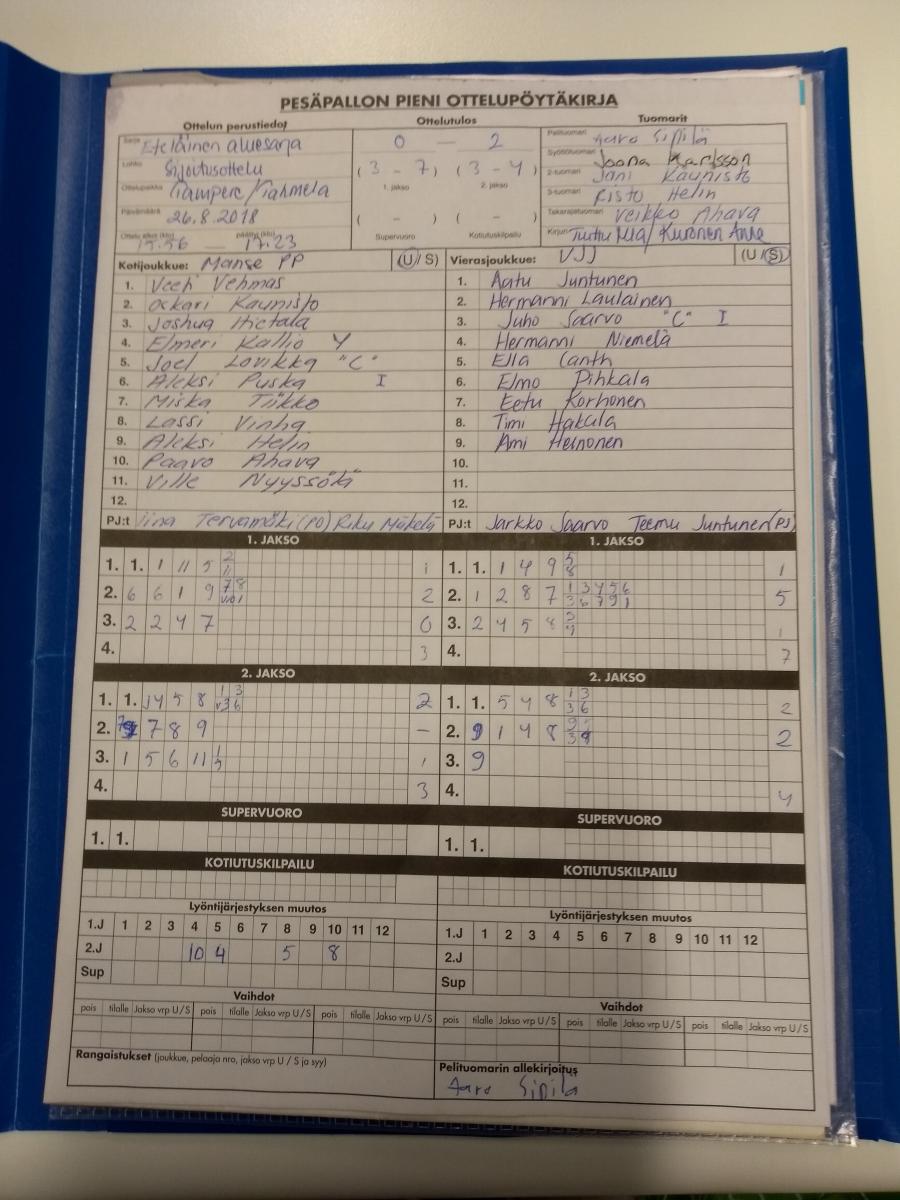 PESÄPALLON PIENI OTTELUPÖYTÄKIRJA
Ottelun perustiedot Ottelutulos Tuomarit
Sarja Eteläinen aluesarja 0 — 2 Pelituomari Aaro Sipilä
Lohko Sijoitusottelu (3 - 7) (3 - 4) Syöttötuomari Joona Karlsson
1. jakso 2. jakso 2-tuomari Jani Kaunisto
Ottelupaikka Tampere/Kahmela 3-tuomari Risto Helin
Päivämäärä 26.8.2018 ( - ) ( - ) Takarajatuomari Veikko Ahava
Ottelu alkoi (klo) 15.56 — päättyi (klo) 17.23 Supervuoro Kotiutuskilpailu Kirjuri / Kuronen Anne
Kotijoukkue: Manse PP (U / S) Vierasjoukkue: VJJ (U / S)
1. Veeti Vehmas 1. Aatu Juntunen
2. Oskari Kaunisto 2. Hermanni Laulainen
3. Joshua Hietala 3. Juho Saarvo "C" I
4. Elmeri Kallio Y 4. Hermanni Niemelä
5. Joel Lovikka "C" 5. Ella Canth
6. Aleksi Puska I 6. Elmo Pihkala
7. Miska Tiikko 7. Eetu Korhonen
8. Lassi Vinha 8. Timi Hakala
9. Aleksi Helin 9. Ami Heinonen
10. Paavo Ahava 10.
11. Ville Nyyssölä 11.
12. 12.
PJ:t Iina Tervamäki (PO) Riku Mäkelä PJ:t Jarkko Saarvo Teemu Juntunen (PJ)
1. JAKSO 1. JAKSO
1. 1. 1 11 5 2 11 1 1. 1. 1 4 9 5 8 1
2. 6 6 1 9 7 8 2 2. 1 2 8 7 1 3 4 5 6 3 6 7 9 1 5
3. 2 2 4 7 0 3. 2 4 5 8 1
4. 3 4. 7
2. JAKSO 2. JAKSO
1. 1. 4 5 8 1 3 3 6 2 1. 1. 5 4 8 1 3 3 6 2
2. 7 8 9 — 2. 9 1 4 8 2
3. 1 5 6 11 1 5 1 3. 9
4. 3 4. 4
SUPERVUORO SUPERVUORO
1. 1. 1. 1.
KOTIUTUSKILPAILU KOTIUTUSKILPAILU
Lyöntijärjestyksen muutos Lyöntijärjestyksen muutos
1.J 1 2 3 4 5 6 7 8 9 10 11 12 1.J 1 2 3 4 5 6 7 8 9 10 11 12
2.J 10 4 5 8 2.J
Sup Sup
Vaihdot Vaihdot
pois tilalle Jakso vrp U/S pois tilalle Jakso vrp U/S pois tilalle Jakso vrp U/S pois tilalle Jakso vrp U/S pois tilalle Jakso vrp U/S pois tilalle Jakso vrp U/S
Rangaistukset (joukkue, pelaaja nro, jakso vrp U / S ja syy) Pelituomarin allekirjoitus
Aaro Sipilä